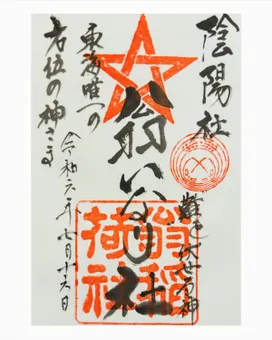 陰陽社
翁いなり社
翁稲荷社
東海唯一の
老位の神さま
令和六年七月十六日